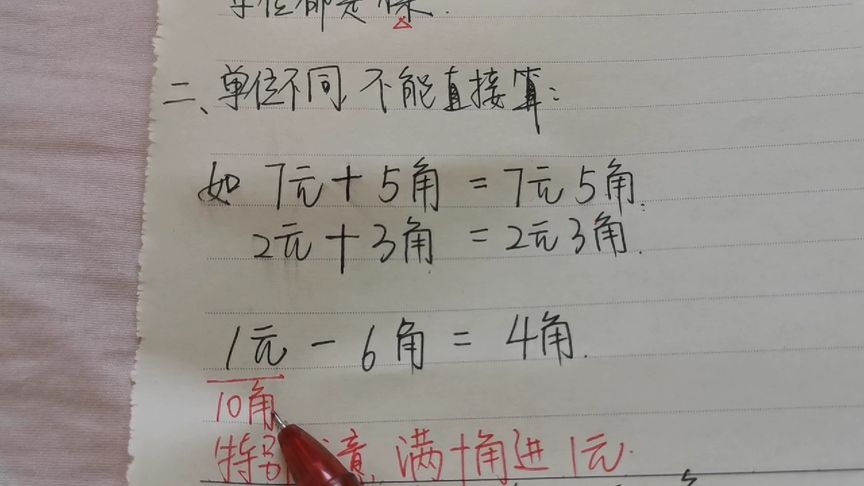 单位都是
二、单位不同,不能直接算:
如 7元+5角=7元5角.
2元+3角=2元3角.
1元-6角=4角.
10角
特别 意 满十角进1元.